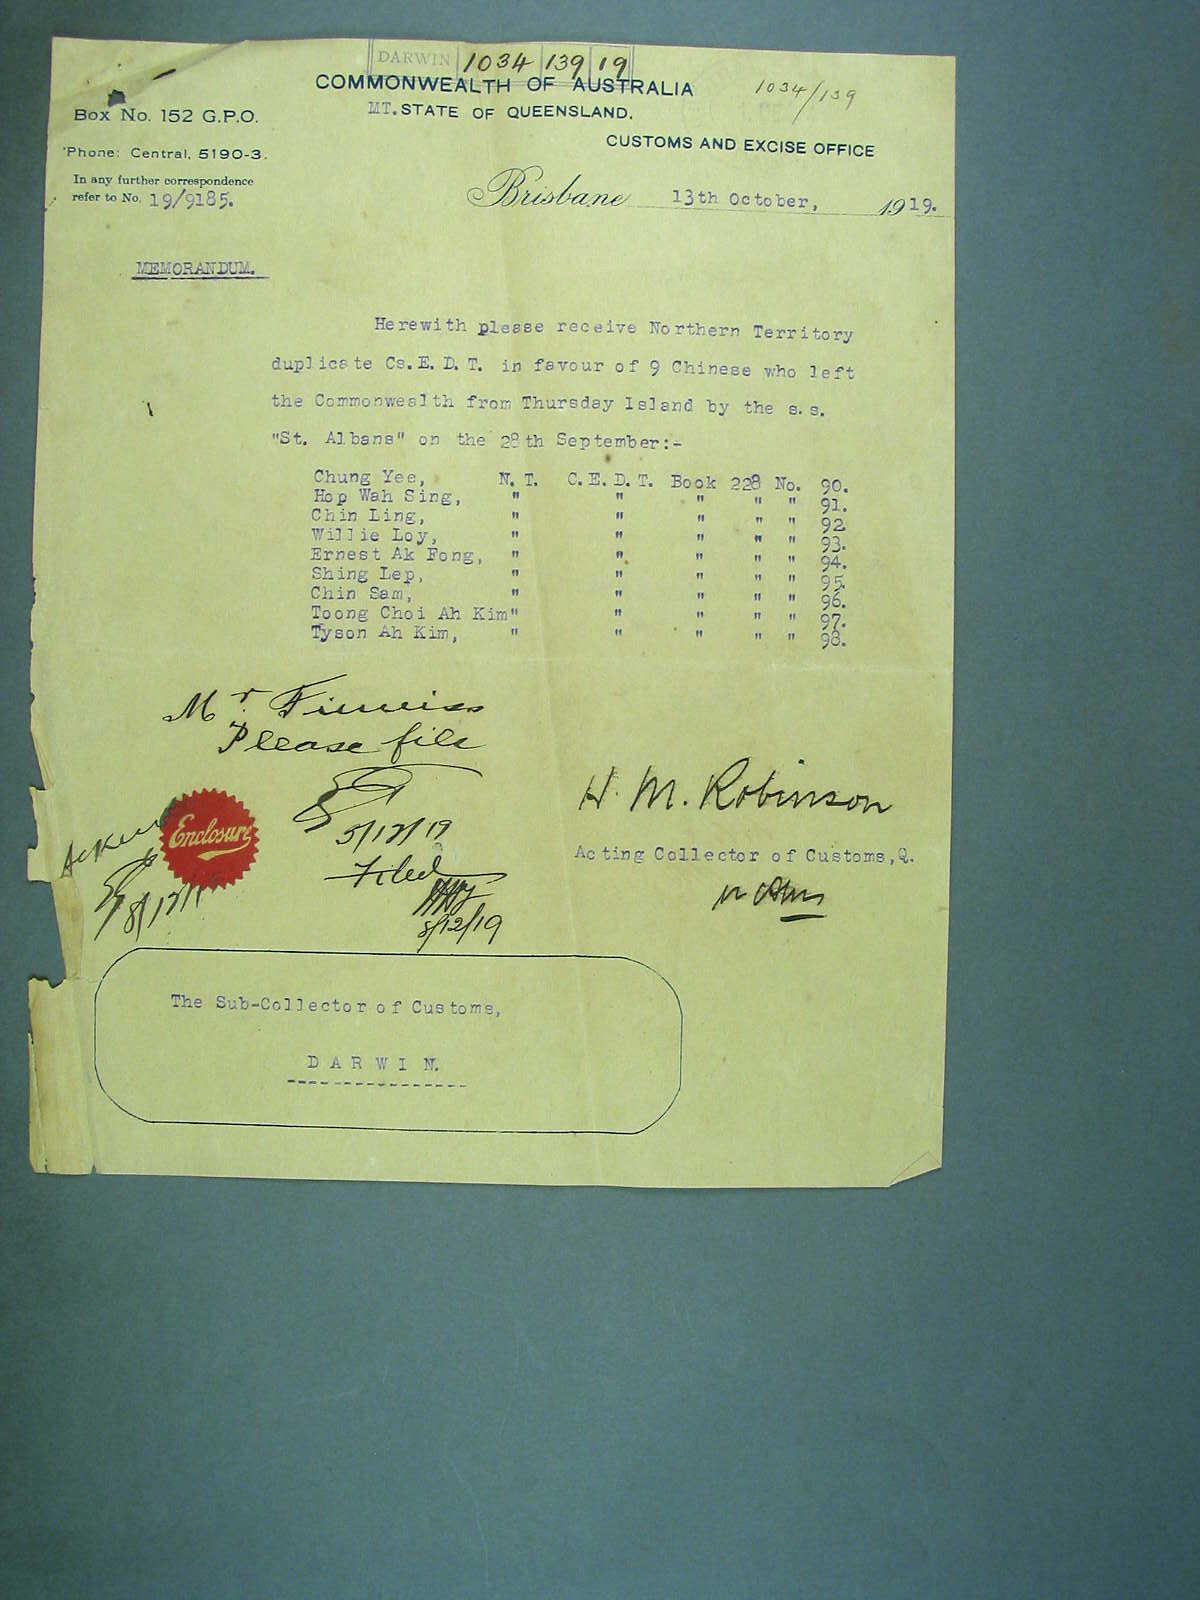 DARWIN 1034 139 19
COMMONWEALTH OF AUSTRALIA
1034/139
Box No. 152 G.P.O.
MT. STATE OF QUEENSLAND.
'Phone: Central, 5190-3.
CUSTOMS AND EXCISE OFFICE
In any further correspondence
refer to No. 19/9185.
Brisbane 13th October, 1919.
MEMORANDUM.
Herewith please receive Northern Territory
duplicate Cs.E.D.T. in favour of 9 Chinese who left
the Commonwealth from Thursday Island by the s.s.
"St. Albans" on the 28th September:-
Chung Yee, N.T. C.E.D.T. Book 228 No. 90.
Hop Wah Sing, " " " " " 91.
Chin Ling, " " " " " 92
Willie Loy, " " " " " 93.
Ernest Ak Fong, " " " " " 94.
Shing Lep, " " " " " 95.
Chin Sam, " " " " " 96.
Toong Choi Ah Kim" " " " " 97.
Tyson Ah Kim, " " " " " 98.
Mr.
Please file
5/12/19
Filed
8/12/19
Enclosure
H. M. Robinson
Acting Collector of Customs, Q.
The Sub-Collector of Customs,
DARWIN.